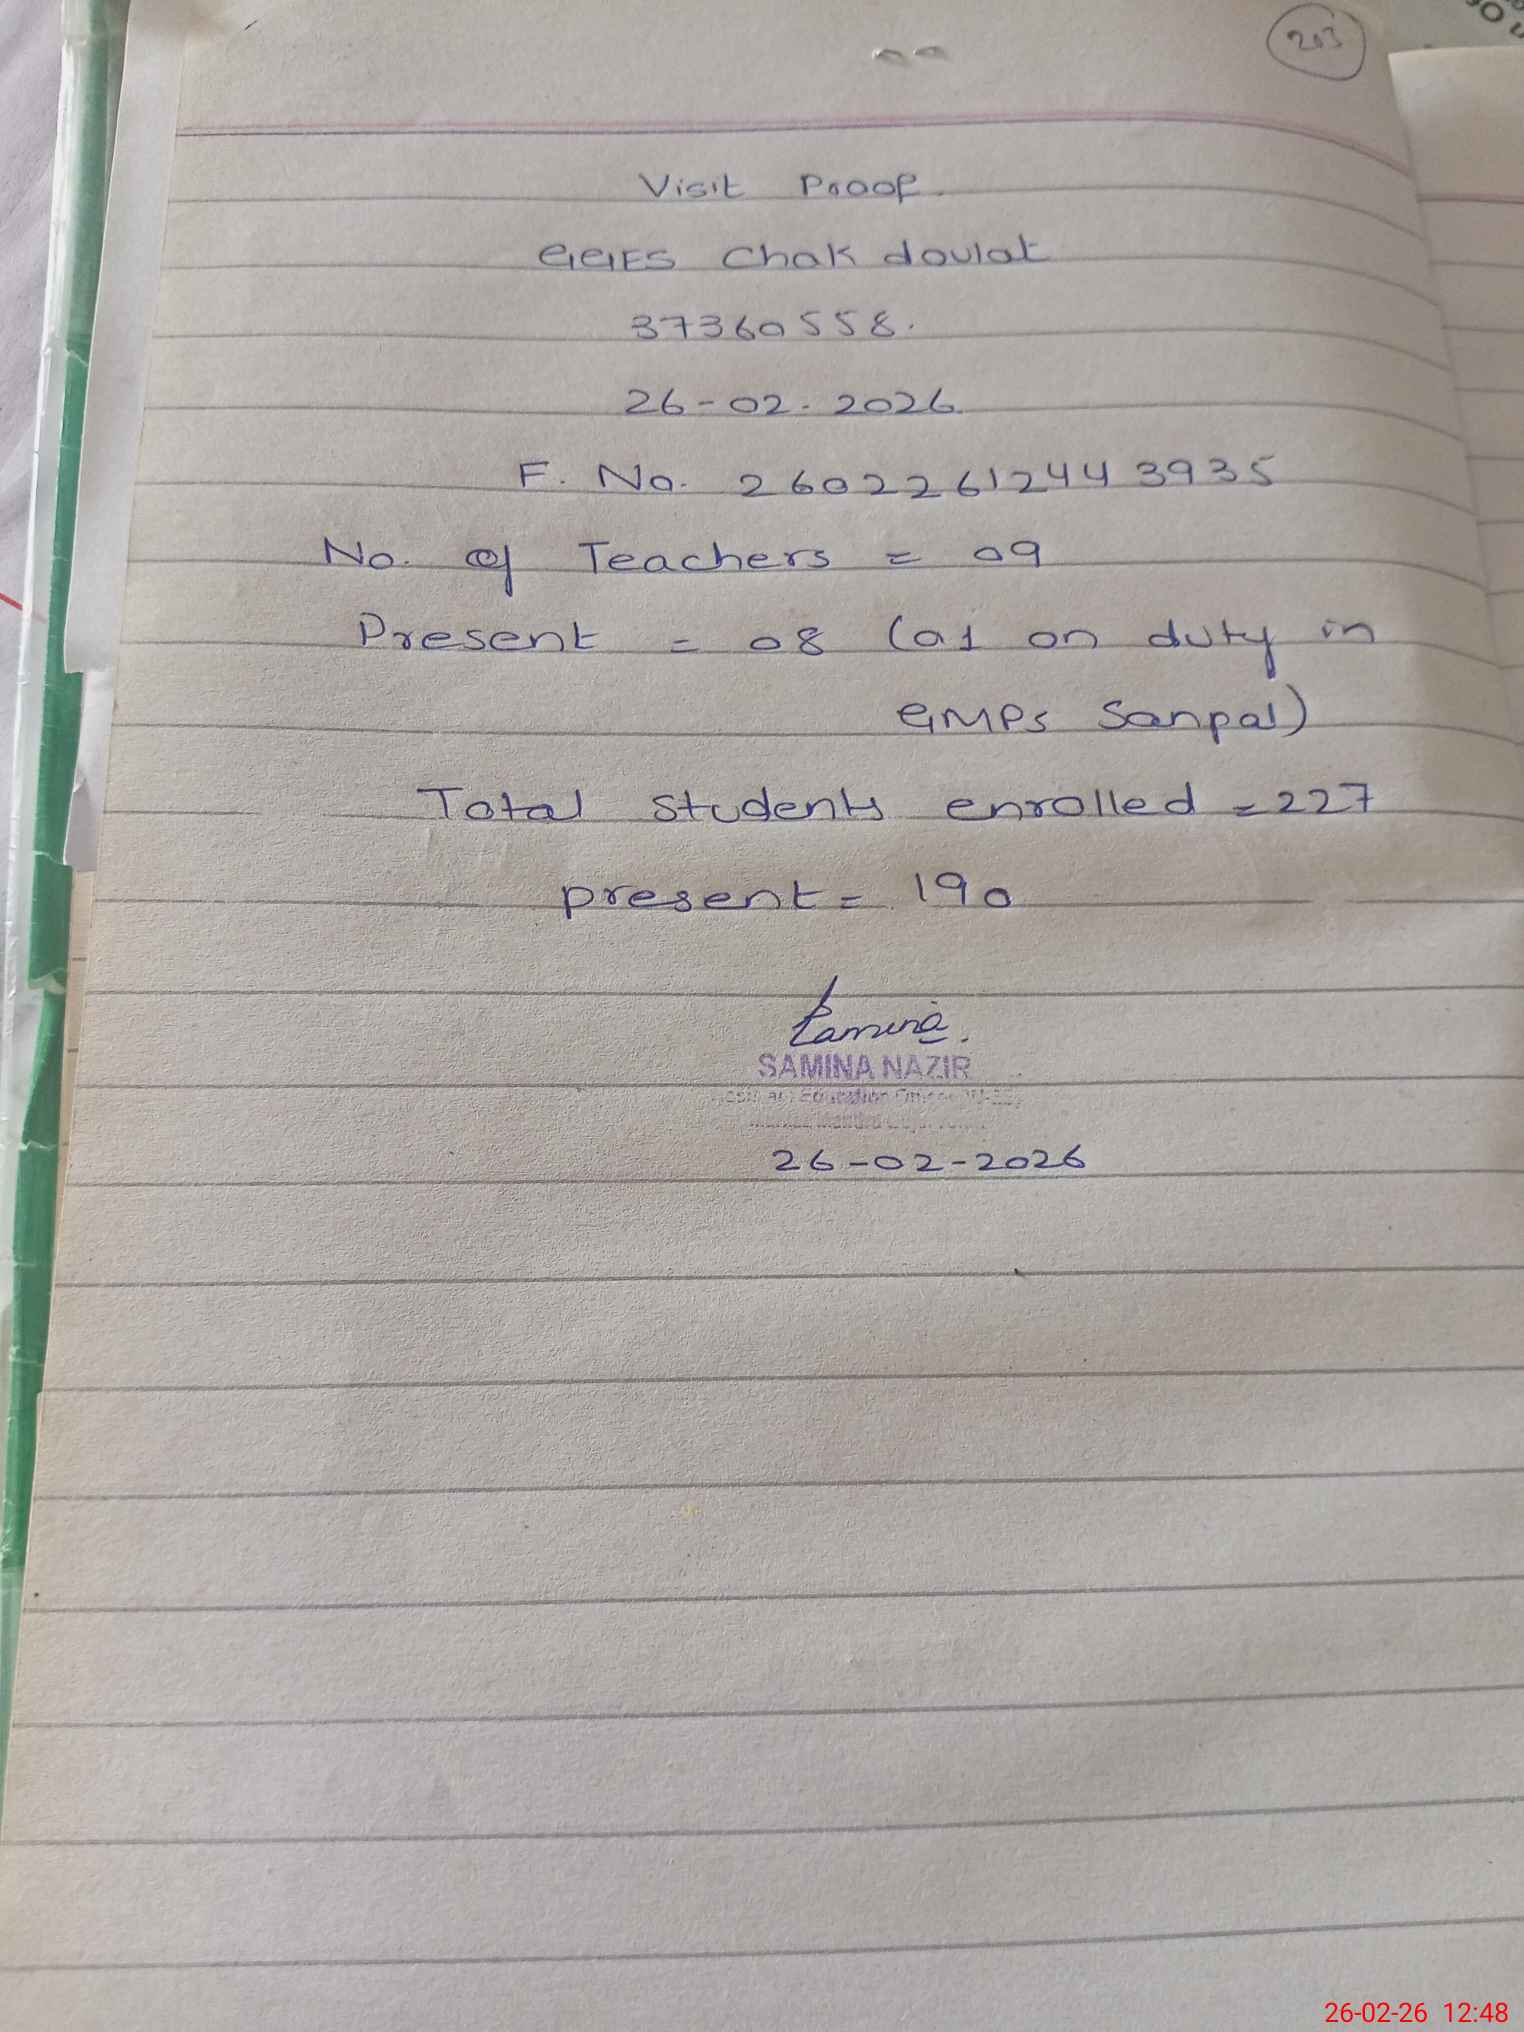 203
Visit Proof.
GGES Chak doulat
37360558.
26-02-2026.
F. No. 260226124443935
No. of Teachers = 09
Present = 08 (01 on duty in
GMPS Sanpal)
Total students enrolled = 227
present = 190
Samina.
SAMINA NAZIR
Education
26-02-2026
26-02-26 12:48